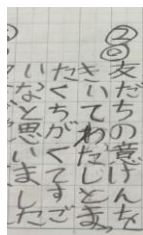 ②◎友だちの意けんを
きいてわたしとま
たくちがくてすご
いなと思いました